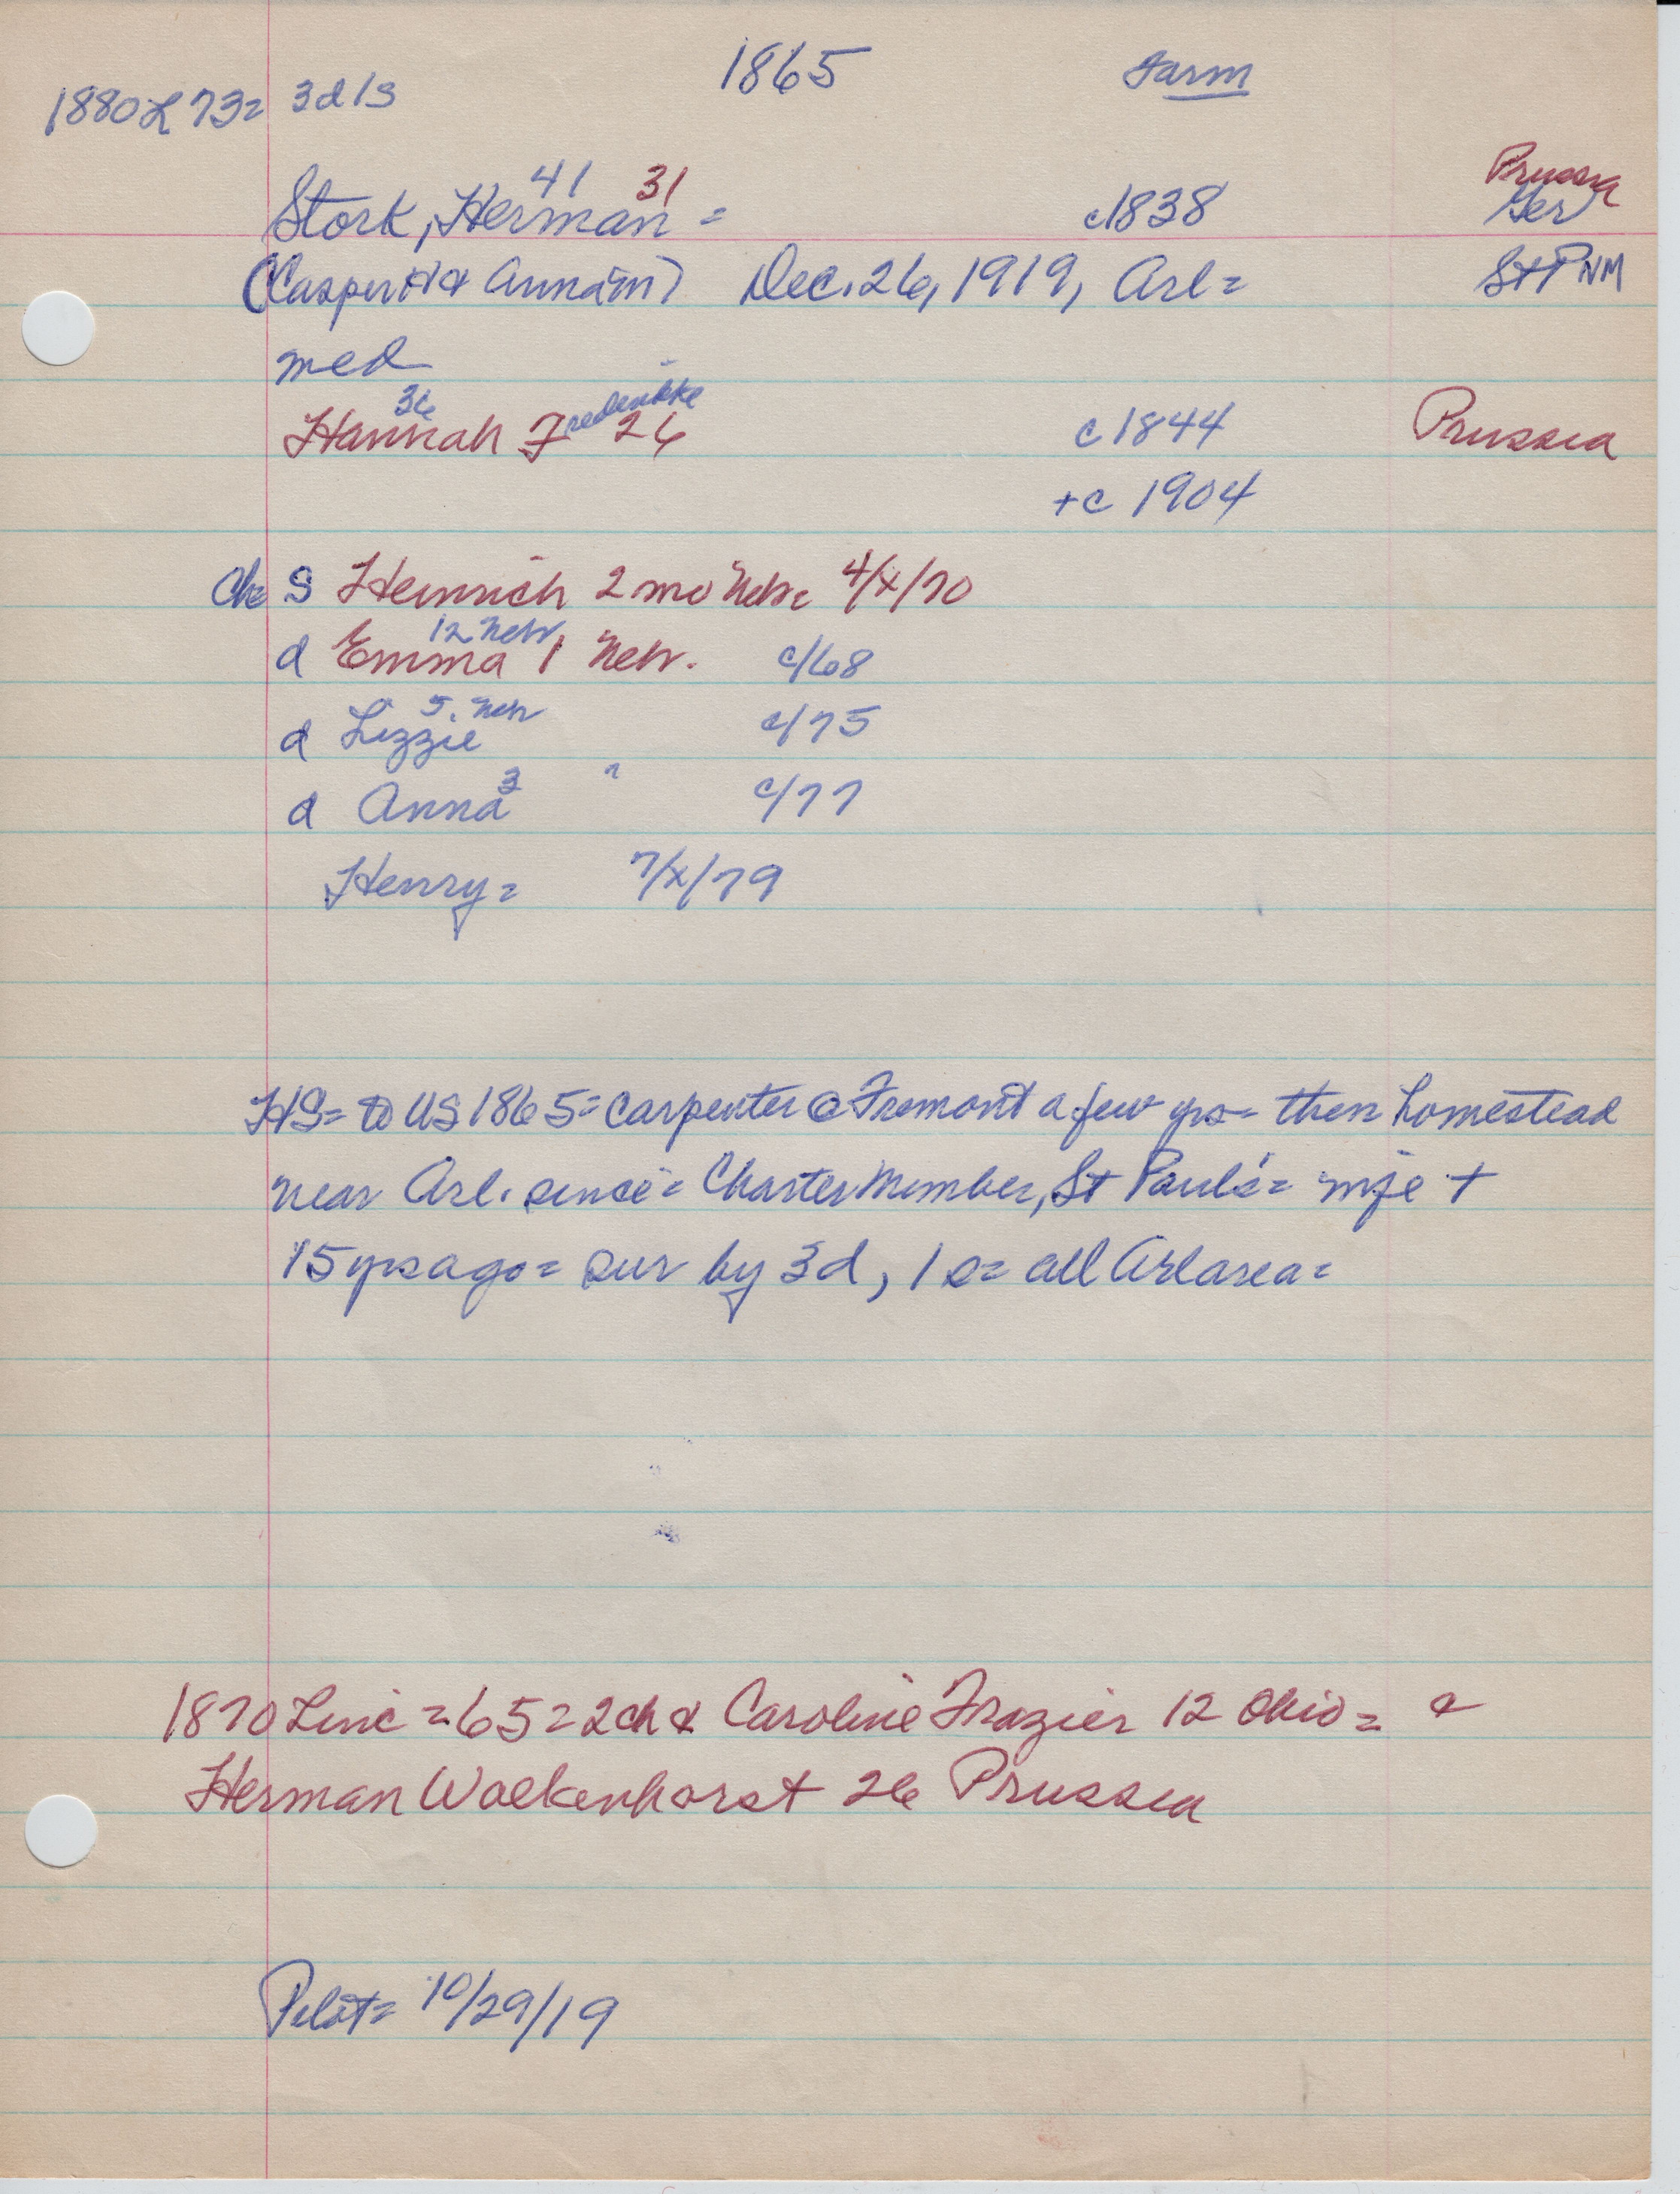 1865 Farm
1880 L 73= 3d 1s
41 31 Prussia
Stork, Herman = c1838 Ger
(Casper H & Anna m) Dec. 26, 1919, Arl= St P NM
med
36 Frederikke
Hannah F 26 c1844 Prussia
+c 1904
Ch= S Heinrich 2 mo Neb= 4/x/70
12 Neb
d Emma 1 Neb. c/68
5. Neb
d Lizzie c/75
d Anna 3 " c/77
Henry= 7/x/79
HS= to US 1865= carpenter @ Fremont a few yrs= then homestead
near Arl. since= Charter Member, St Paul's= wife +
15 yrs ago= sur by 3d, 1 s= all Arl area=
1870 Linc=65=2ch & Caroline Frazier 12 Ohio= &
Herman Wolkenhorst 26 Prussia
Pilot= 10/29/19